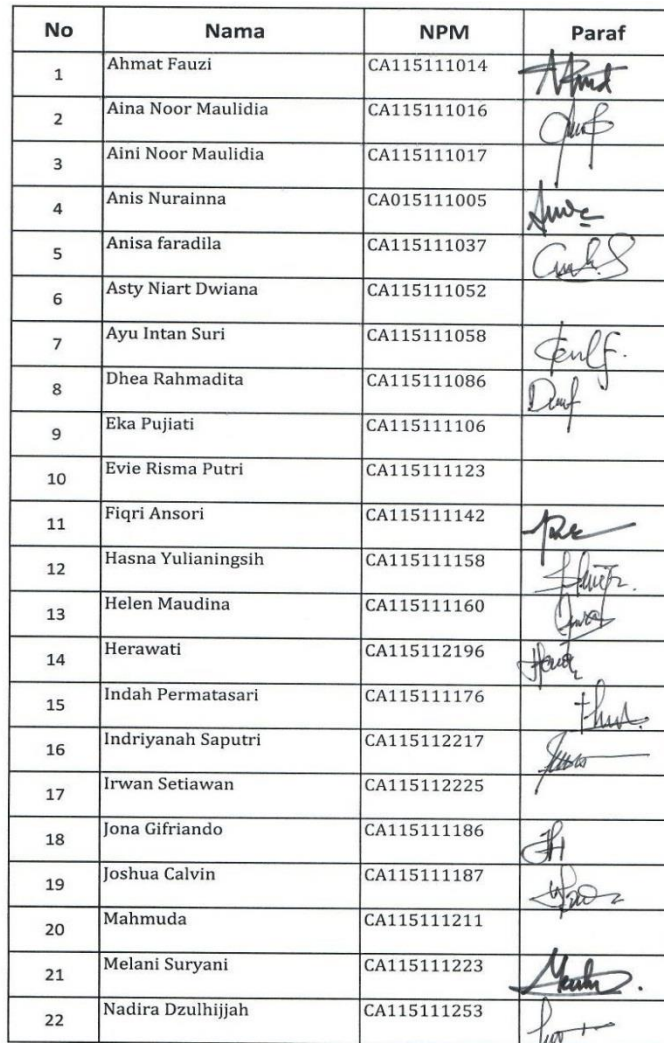 No Nama NPM Paraf
1 Ahmat Fauzi CA115111014
2 Aina Noor Maulidia CA115111016
3 Aini Noor Maulidia CA115111017
4 Anis Nurainna CA015111005
5 Anisa faradila CA115111037
6 Asty Niart Dwiana CA115111052
7 Ayu Intan Suri CA115111058
8 Dhea Rahmadita CA115111086
9 Eka Pujiati CA115111106
10 Evie Risma Putri CA115111123
11 Fiqri Ansori CA115111142
12 Hasna Yulianingsih CA115111158
13 Helen Maudina CA115111160
14 Herawati CA115112196
15 Indah Permatasari CA115111176
16 Indriyanah Saputri CA115112217
17 Irwan Setiawan CA115112225
18 Jona Gifriando CA115111186
19 Joshua Calvin CA115111187
20 Mahmuda CA115111211
21 Melani Suryani CA115111223
22 Nadira Dzulhijjah CA115111253